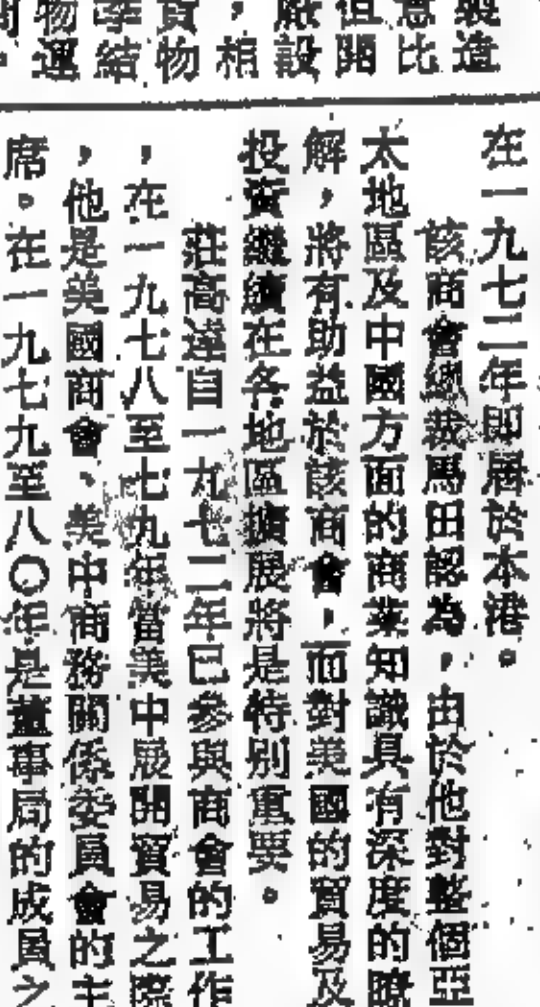 製造
意比
但開
廠設
，相
資物
季結
物運
在一九七二年即居於本港。
該商會總裁馬田認為，由於他對整個亞
太地區及中國方面的商業知識具有深度的瞭
解，將有助益於該商會，而對美國的貿易及
投資繼續在各地區擴展將是特別重要。
莊高達自一九七二年已參與商會的工作
，在一九七八至七九年當美中展開貿易之際
，他是美國商會、美中商務關係委員會的主
席。在一九七九至八〇年是董事局的成員之